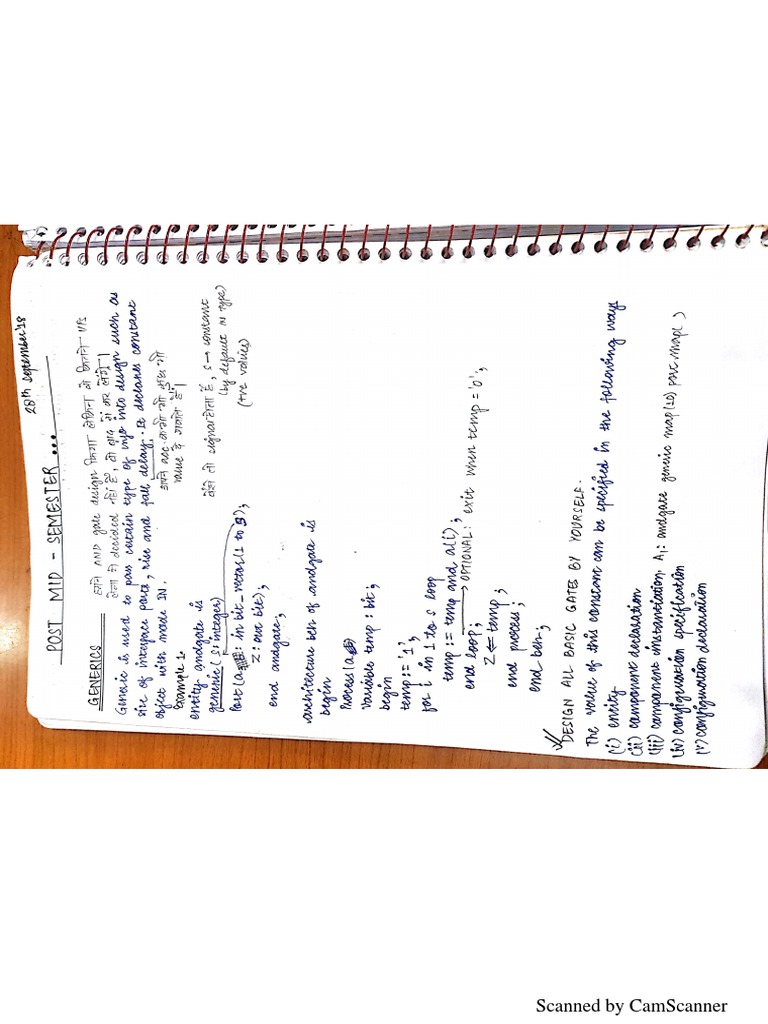 28th September'18
POST MID - SEMESTER ...
GENERICS
हमने AND gate design किया लेकिन वो कितने I/Ps
लेगा ये decided नहीं है, वो बाद में कर लेंगे।
Generic is used to pass certain type of info into design such as
size of interface ports, rise and fall delay. It declares constant
object with mode IN.
अपने acc. कभी भी कुछ भी
value दे सकते हैं।
Example 1:
entity andgate is
generic (s: integer)
वैसे तो signal होता है, s → constant
(by default IN type)
(+ve values)
Port (a : in bit_vector (1 to s);
z : out bit);
end andgate;
architecture beh of andgate is
begin
Process (a)
Variable temp : bit;
begin
temp := '1';
for i in 1 to s loop
temp := temp and a(i);
→ OPTIONAL: exit when temp = '0';
end loop;
z <= temp;
end process;
end beh;
DESIGN ALL BASIC GATES BY YOURSELF.
The value of this constant can be specified in the following ways
(i) entity
(ii) component declaration
(iii) component instantiation. A1: andgate generic map(10) port map( )
(iv) configuration specification
(v) configuration declaration
Scanned by CamScanner